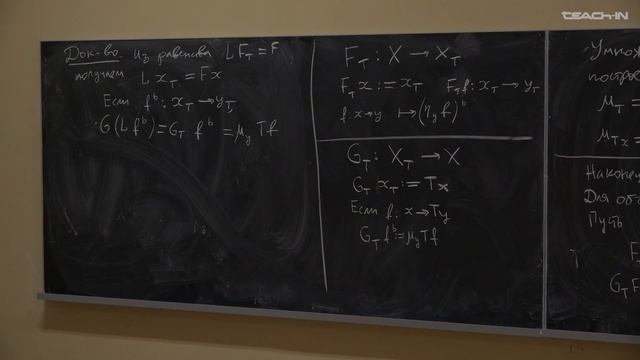 Док-во из равенства L F_T = F
получаем L x_T = Fx
Если f^b : x_T → y_T,
G(L f^b) = G_T f^b = μ_y Tf
F_T : X → X_T
F_T x := x_T F_T f : x_T → y_T
f: x → y ↦ (η_y f)^b
G_T : X_T → X
G_T x_T := Tx
Если f: x → Ty
G_T f^b := μ_y Tf
Умнож
построе
μ_T =
μ_Tx =
Наконец
Для об
Пусть
TEACH-IN